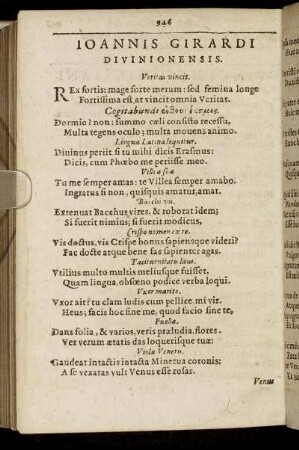 946
IOANNIS GIRARDI
DIVINIONENSIS.
Veritas vincit.
REx fortis: mage forte merum: sed femina longe
Fortissima est, at vincit omnia Veritas.
Cogitabundi
Dormio? non: summo cæli consisto recessu,
Multa tegens oculo; multa mouens animo.
Lingua Latina loquitur.
Diuinus periit si tu mihi dicis Erasmus:
Dicis, cum Phœbo me periisse meo.
Villeæ suæ
Tu me semper amas: te Villea semper amabo.
Ingratus si non, quisquis amatur, amat.
Bacchi vis.
Extenuat Bacchus, vires, & roborat idem;
Si fuerit nimius; si fuerit modicus,
Crispi nomen ex re.
Vis doctus, vis Crispe bonus sapiensque videri?
Fac docte atque bene fas sapienter agas.
Taciturnitatis laus.
Vtilius multo multis meliusque fuisset,
Quam lingua, obscœno podice verba loqui.
Vxor marito.
Vxor ait: tu clam ludis cum pellice, mi vir.
Heus; facis hoc sine me, quod facio sine te,
Puellæ.
Dans folia, & varios, veris præludia, flores.
Ver verum ætatis das loquerisque tuæ:
Violæ Veneri.
Gaudeat intactis intacta Minerua coronis:
A se vexatas vult Venus esse rosas.
Venus